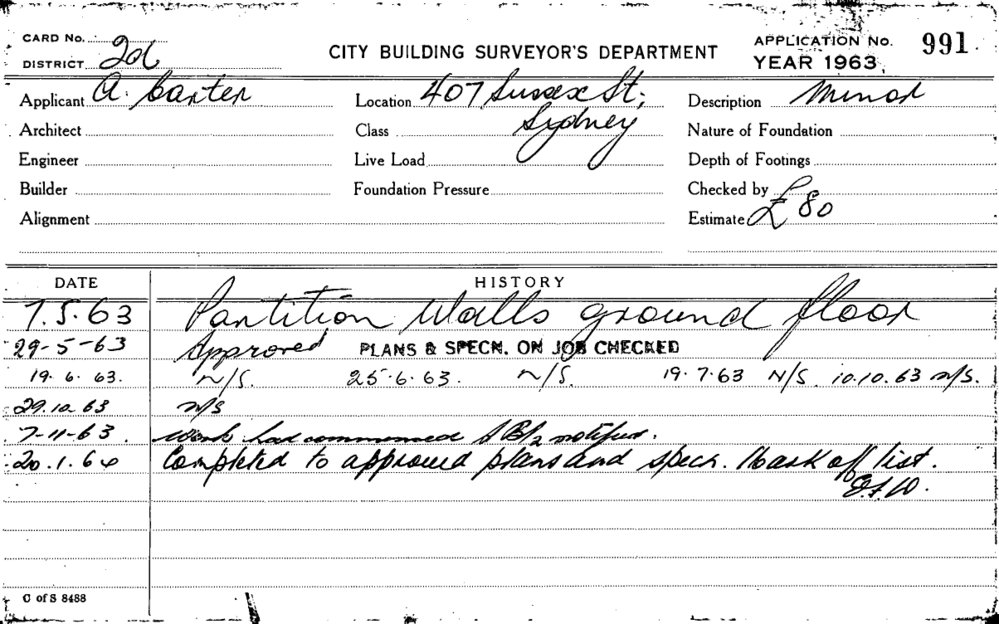 CARD No. APPLICATION No. 991
DISTRICT 2d CITY BUILDING SURVEYOR'S DEPARTMENT YEAR 1963
Applicant A. Carter Location 407 Sussex St, Description Minor
Architect Class Sydney Nature of Foundation
Engineer Live Load Depth of Footings
Builder Foundation Pressure Checked by
Alignment Estimate £80
DATE HISTORY
7.5.63 Partition Walls ground floor
29-5-63 Approved PLANS & SPECN. ON JOB CHECKED
19.6.63. N/S. 25.6.63. N/S. 19.7.63 N/S. 10.10.63 N/S.
29.10.63 N/S
7-11-63. Work had commenced notified.
20.1.64 Completed to approved plans and specn. Mark off list.
C of S 8488